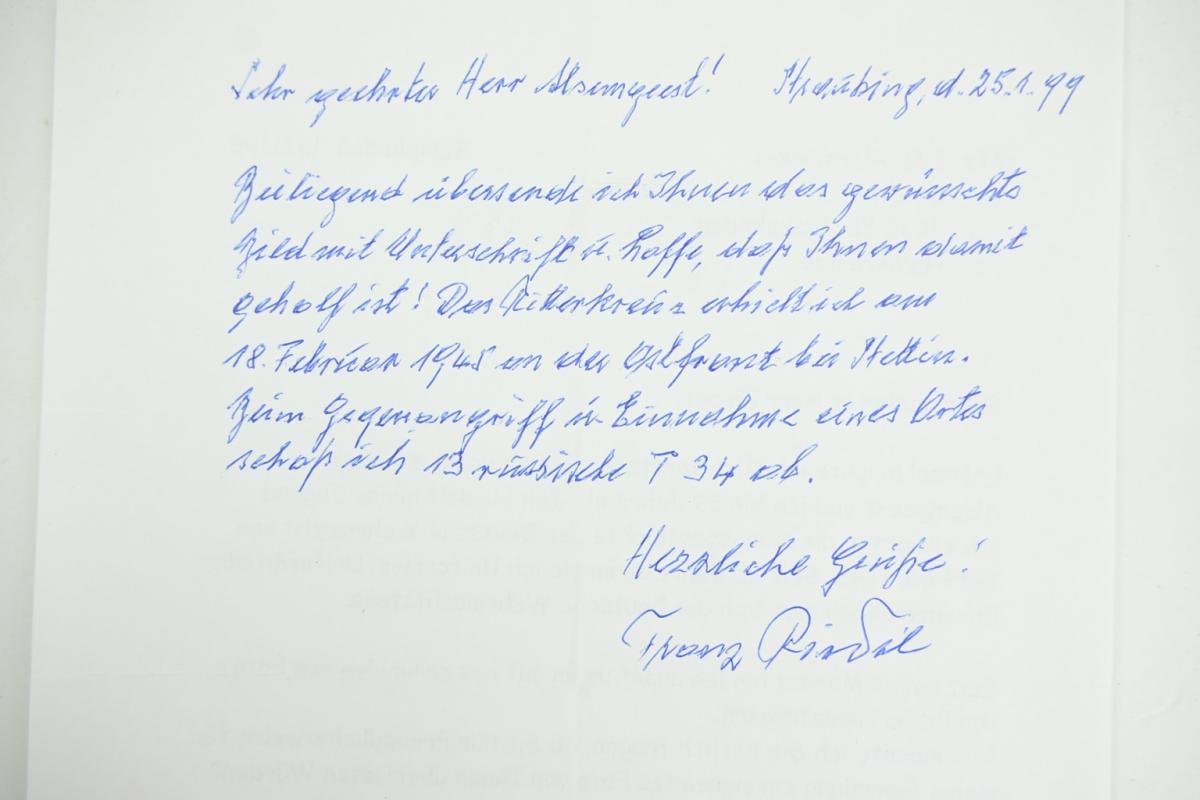 Sehr geehrter Herr Alsemgeest! Straubing, d. 25.1.99
Beiliegend übersende ich Ihnen das gewünschte
Bild mit Unterschrift u. hoffe, daß Ihnen damit
geholf ist! Das Ritterkreuz erhielt ich am
18. Februar 1945 an der Ostfront bei Stettin.
Beim Gegenangriff u. Einnahme eines Ortes
schoß ich 13 russische T 34 ab.
Herzliche Grüße!
Franz Riedel